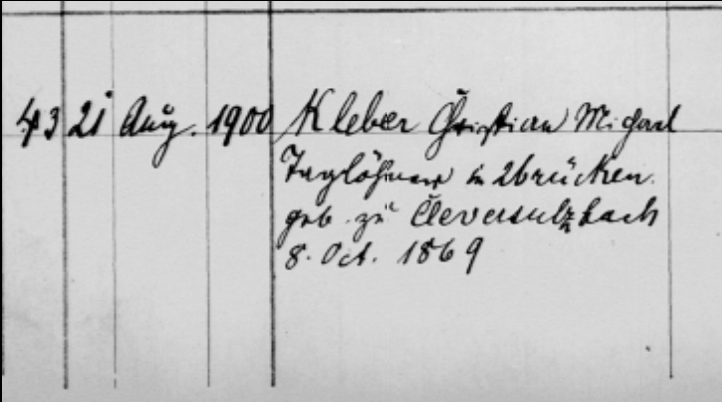 43 21 Aug. 1900 Kleber Christian Michael
Taglöhner in 2brücken.
geb. zu Cleversulzbach
8. Oct. 1869